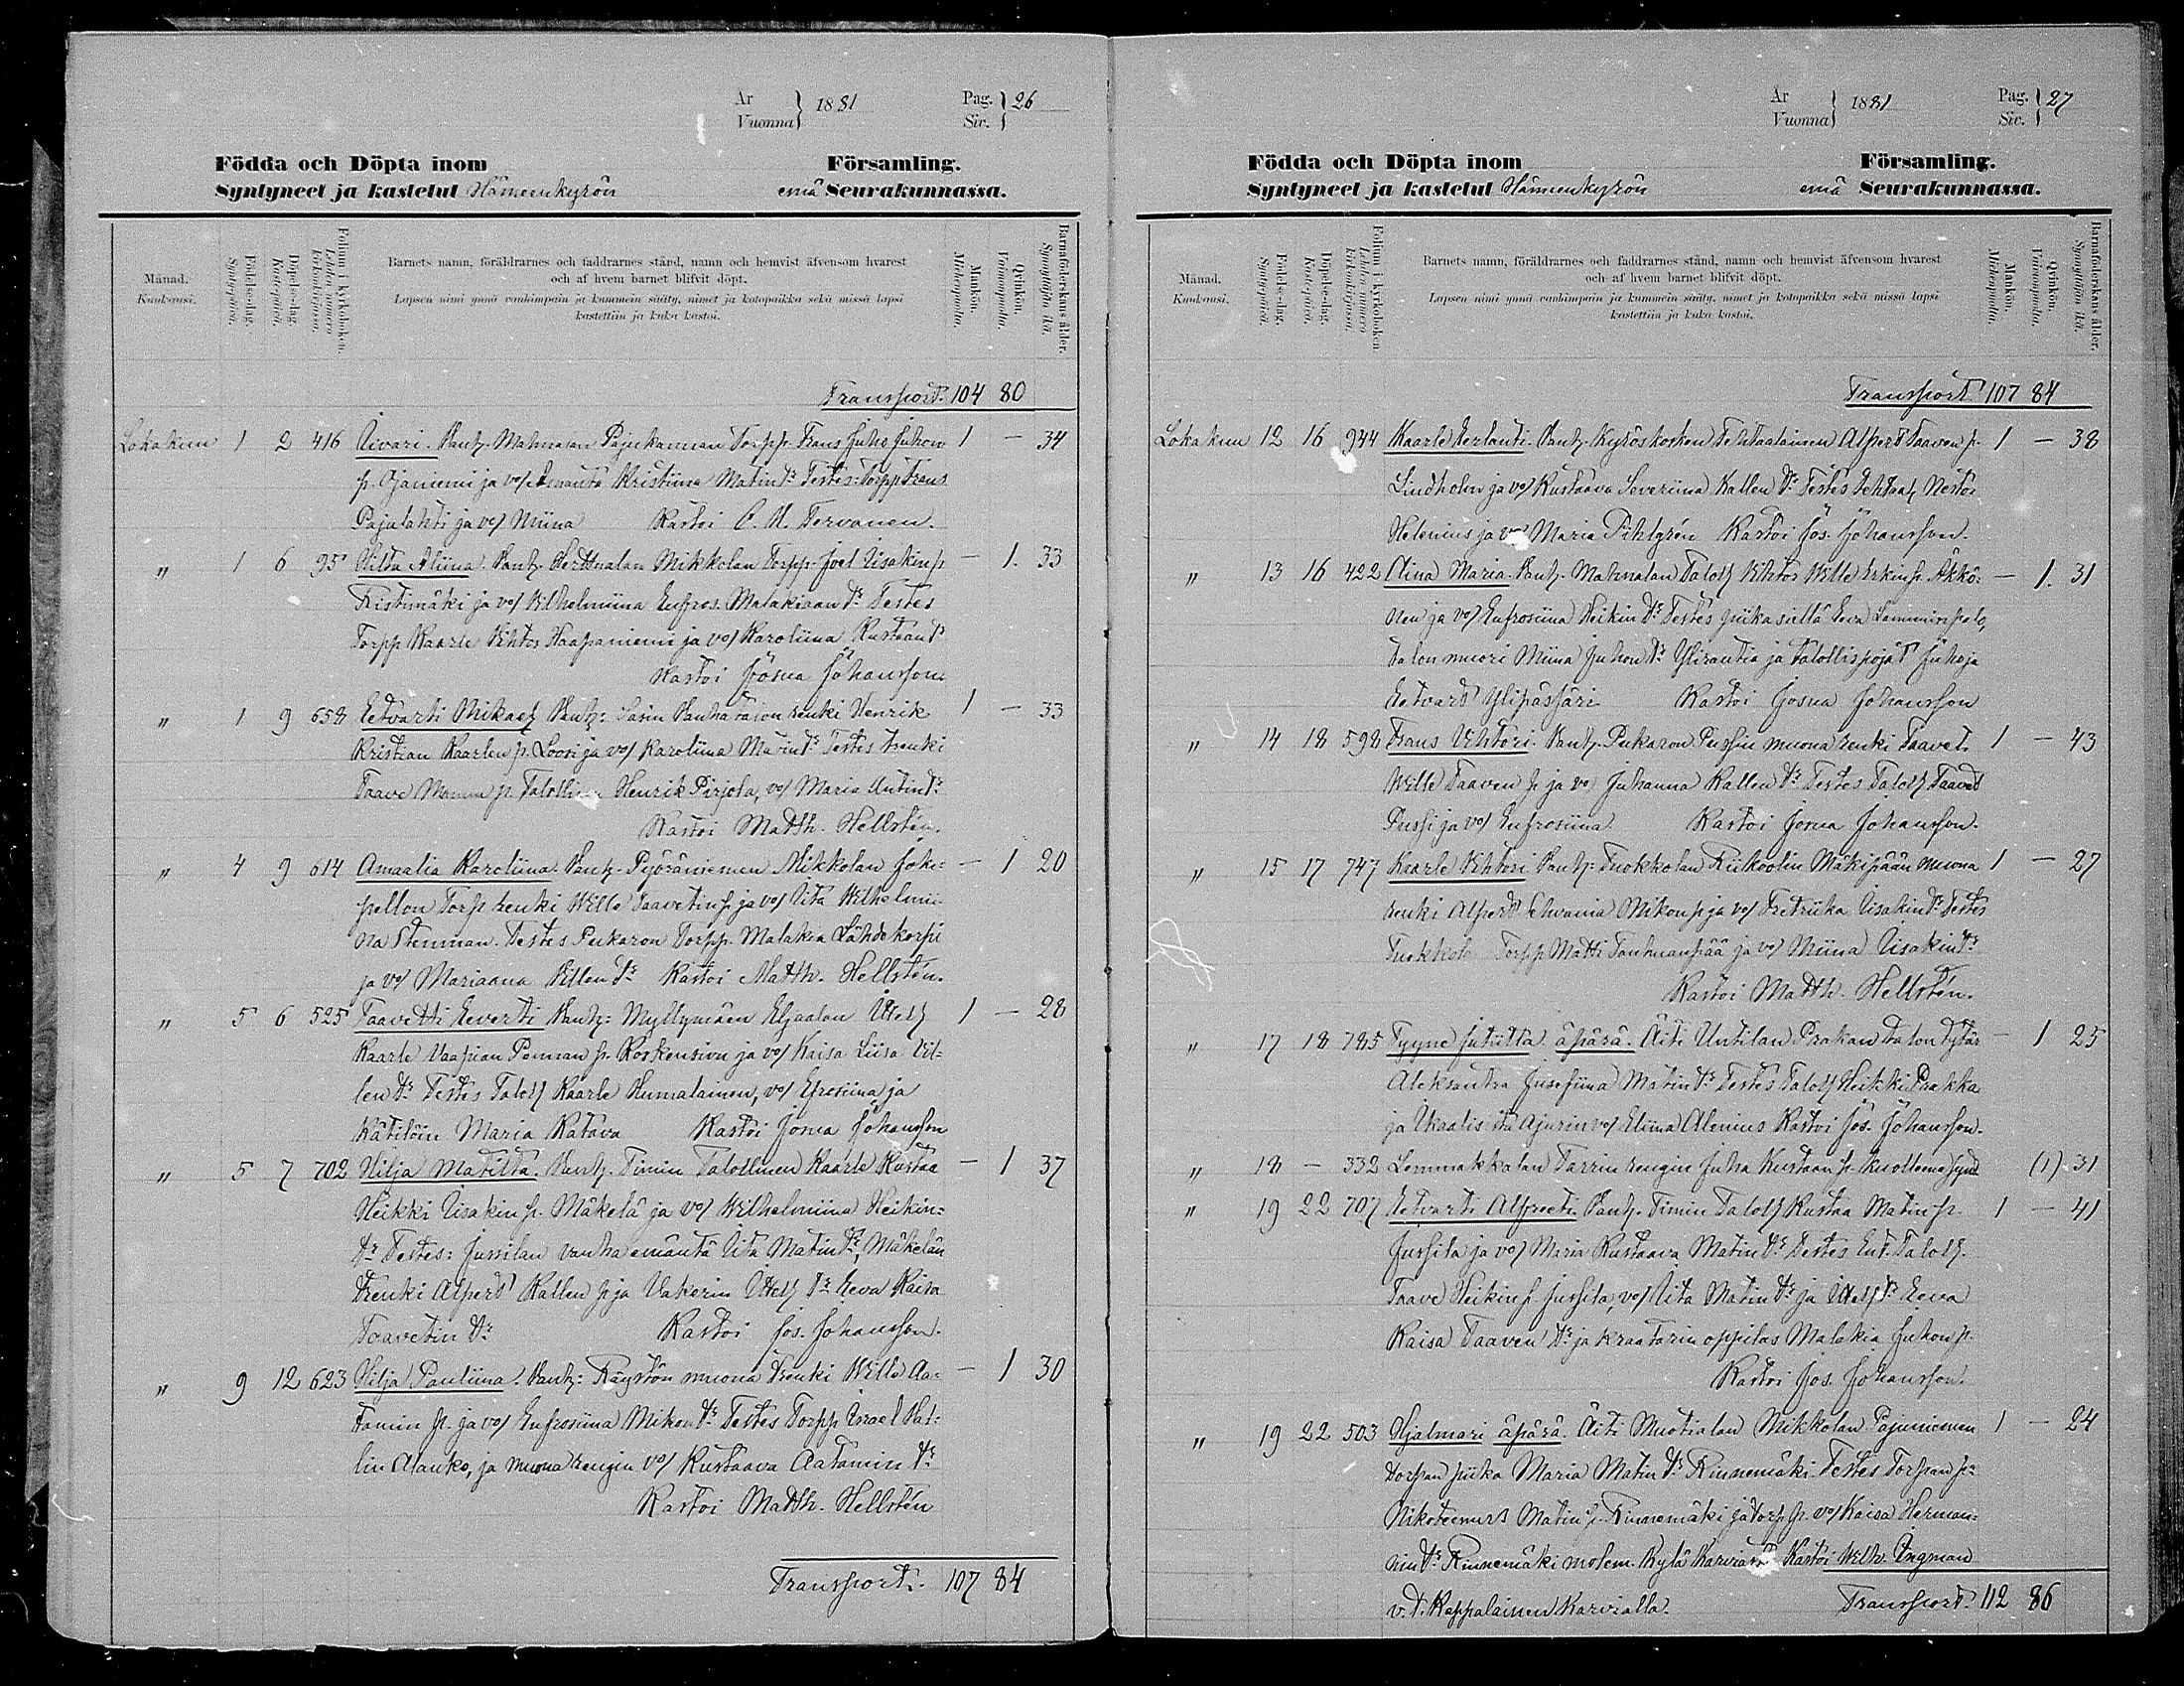 År
Vuonna } 1881
Pag.
Siv. } 26
Födda och Döpta inom Församling.
Syntyneet ja kastetut Hämeenkyrön emä Seurakunnassa.
Månad.
Kuukausi.
Födelse-dag.
Syntypäivä.
Döpelse-dag.
Kastepäivä.
Folium i kyrkoboken.
Lehden numero
kirkonkirjassa.
Barnets namn, föräldrarnes och faddrarnes stånd, namn och hemvist äfvensom hvarest
och af hvem barnet blifvit döpt.
Lapsen nimi ynnä vanhimpain ja kummein sääty, nimet ja kotopaikka sekä missä lapsi
kastettiin ja kuka kastoi.
Mankön.
Miehenpuolia.
Qvinkön.
Vaimonpuolia.
Barnaföderskans ålder.
Synnyttäjän ikä.
Transport. 104 80
Lokakuu 1 2 416 Iivari. Vanh. Mahnalan Pajukannan Torpp. Frans Juho Juhon 1 — 34
p. Ojaniemi ja vo/ Amanta Kristiina Matin Tr Testes: Torpp Frans
Pajulahti ja vo/ Miina Kastoi C. U. Tervonen.
" 1 6 95 Hilda Aliina. Vanh. Herttualan Mikkolan Torpp. Joel Iisakin p — 1. 33
Ristimäki ja vo/ Wilhelmiina Eufros. Malakiaan Tr Testes
Torpp Kaarle Vihtor Haapaniemi ja vo/ Karoliina Kustaan Tr
Kastoi Joosua Johansson
" 1 9 658 Eetvarti Mikael Vanh: Sasin Vanhatalon renki Henrik 1 — 33
Kristian Kaarlen p. Loosi ja vo/ Karoliina Matin Tr Testes trenki
Taave p. Talolli Henrik Pirjola, vo/ Maria Antin Tr
Kastoi Matth. Hellstén.
" 4 9 614 Amaalia Karoliina. Vanh. Pyöräniemen Mikkolan Joki= — 1 20
pellon Torp renki Wille Taavetin p ja vo/ Iita Wilhelmii
na Stenman. Testes Pukaron Torpp. Malakia Lähdekorpi
ja vo/ Mariaana Villen Tr Kastoi Matth. Hellstén.
" 5 6 525 Taavetti Eeverti Vanh: Myllymäen Eljaalan Itell 1 — 28
Kaarle Vaapian p. Koskensivu ja vo/ Kaisa Liisa Vil=
len Tr Testes Taloll Kaarle Humalainen, vo/ Efrosiina ja
Kätilöin Maria Katava Kastoi Josua Johansson
" 5 7 702 Hilja Matilta. Vanh. Timin Talollinen Kaarle Kustaa — 1 37
Heikki Iisakin p. Mäkelä ja vo/ Wilhelmiina Heikin=
Tr Testes: Jussilan vanha emäntä Iita Matin Tr, Mäkelän
trenki Alpert Kallen p ja Vakerin Itell Tr Eeva Kaisa
Taavetin Tr Kastoi Jos. Johansson.
" 9 12 623 Hilja Pauliina. Vanh: Räystön muona trenki Wille Aa= — 1 30
tamin p. ja vo/ Eufrosiina Mikon Tr Testes Torpp Israel Hal=
lin Alanko, ja muona rengin vo/ Kustaava Aatamin Tr
Kastoi Matth. Hellstén
Transport. 107 84
År
Vuonna } 1881
Pag.
Siv. } 27
Födda och Döpta inom Församling.
Syntyneet ja kastetut Hämeenkyrön emä Seurakunnassa.
Månad.
Kuukausi.
Födelse-dag.
Syntypäivä.
Döpelse-dag.
Kastepäivä.
Folium i kyrkoboken
Lehden numero
kirkonkirjassa
Barnets namn, föräldrarnes och faddrarnes stånd, namn och hemvist äfvensom hvarest
och af hvem barnet blifvit döpt.
Lapsen nimi ynnä vanhimpain ja kummein sääty, nimet ja kotopaikka sekä missä lapsi
kastettiin ja kuka kastoi.
Mankön.
Miehenpuolia.
Qvinkön.
Vaimonpuolia.
Barnaföderskans ålder.
Synnyttäjän ikä.
Transport 107 84
Lokakuu 12 16 944 Kaarle Eerlanti. Vanh. Kyröskosken Tehtaalainen Alpert Taaven p. 1 — 38
Lindholm ja vo/ Kustaava Severiina Kallen Tr Testes Tehtaal, Nestor
Helenius ja vo/ Maria Pihlgrén Kastoi Jos. Johansson.
" 13 16 422 Alina Maria. Vanh. Mahnalan Taloll Vihtor Wille Erkin p. Äkkö= — 1. 31
nen ja vo/ Eufrosiina Heikin Tr Testes piika siellä Eeva Lamminpelo,
talon muori Miina Juhon Tr Ylirautia ja Talollispojat Juho ja
Eetvart Ylipässäri Kastoi Josua Johansson
" 14 18 598 Frans Vihtori. Vanh. Pukaron Pussin muona renki Taavet. 1 — 43
Wille Taaven p ja vo/ Johanna Kallen Tr Testes Taloll Taavet
Pussi ja vo/ Eufrosiina Kastoi Josua Johansson.
" 15 17 747 Kaarle Vihtori Vanh: Tuokkolan Riikoolin Mäkipään muona 1 — 27
renki Alpert Mikon p ja vo/ Fretriika Iisakin Tr Testes
Tuokkol Torpp Matti Tanhuanpää ja vo/ Miina Iisakin Tr
Kastoi Matth. Hellstén.
" 17 18 785 Tyyne Jutiitta. äpärä. Äiti Untilan Prakan talon tytär — 1 25
Aleksantra Josefiina Matin Tr Testes Taloll Heikki Prakka
ja Ikaalista Ajurin vo/ Eliina Alenius Kastoi Jos. Johansson.
" 18 — 332 Lemmakkalan Tarrin rengin Juha Kustaan p. kuolleena synt (1) 31
" 19 22 707 Eetvarti Alfreeti. Vanh. Timin Taloll Kustaa Matin p. 1 — 41
Jussila ja vo/ Maria Kustaava Matin Tr Testes Ent. Taloll.
Taave Heikin p. Jussila, vo/ Iita Matin Tr ja Itell Tr Eeva
Kaisa Taaven Tr ja kraatarin oppilas Malakia Juhon p.
Kastoi Jos. Johansson.
" 19 22 503 Hjalmari äpärä. Äiti Muotialan Mikkolan Pajuniemen 1 — 24
torpan piika Maria Matin Tr Rinnemäki. Testes Torpan p=
Nikoteemus Matin p. Rinnemäki ja torpp. vo/ Kaisa Herman=
nin Tr Rinnemäki molem. Kylä Karvialta Kastoi Wilh. Ingman
v. t. Kappalainen Karvialla.
Transport 112 86